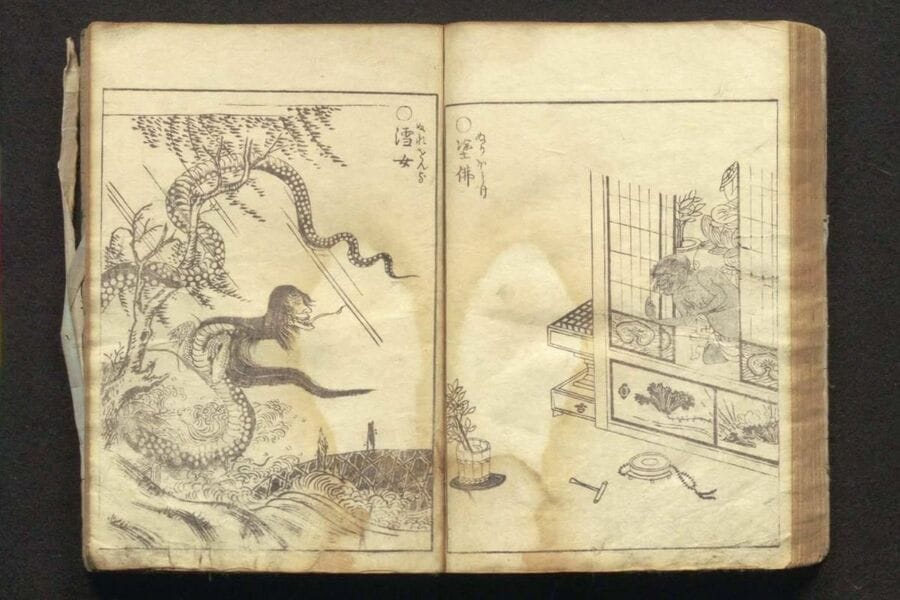 ○塗佛
ぬりぼとけ
○濡女
ぬれをんな